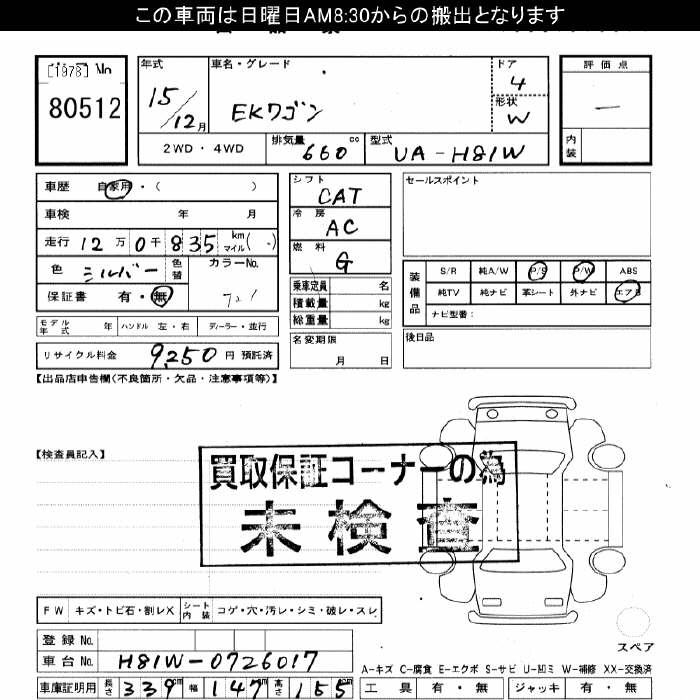 この車両は日曜日AM8:30からの搬出となります
[1978] No
80512
年式 車名・グレード ドア 評価点
15/12月 EKワゴン 4
形状 W
2WD・4WD 排気量 660 cc 型式 UA-H81W 内装
車歴 自家用・( )
車検 年 月
走行 12万0千835 km マイル( )
色 シルバー 色替 カラーNo.
保証書 有・無
モデル年式 年 ハンドル 左・右 ディーラー・並行
リサイクル料金 9,250 円 預託済
シフト CAT
冷房 AC
燃料 G
乗車定員 名
積載量 kg
総重量 kg
名変期限
月 日
セールスポイント
装備品 S/R 純A/W P/S P/W ABS
純TV 純ナビ 革シート 外ナビ エアB
ナビ型番:
後日品
【出品店申告欄(不良箇所・欠品・注意事項等)】
【検査員記入】
買取保証コーナーの為
未検査
FW キズ・トビ石・割レX シート内装 コゲ・穴・汚レ・シミ・破レ・スレ
登録No.
車台No. H81W-0726017
車庫証明用 長さ 339 cm 幅 147 cm 高さ 155 cm
スペア
A-キズ C-腐食 E-エクボ S-サビ U-凹ミ W-補修 XX-交換済
工具 有・無 ジャッキ 有・無